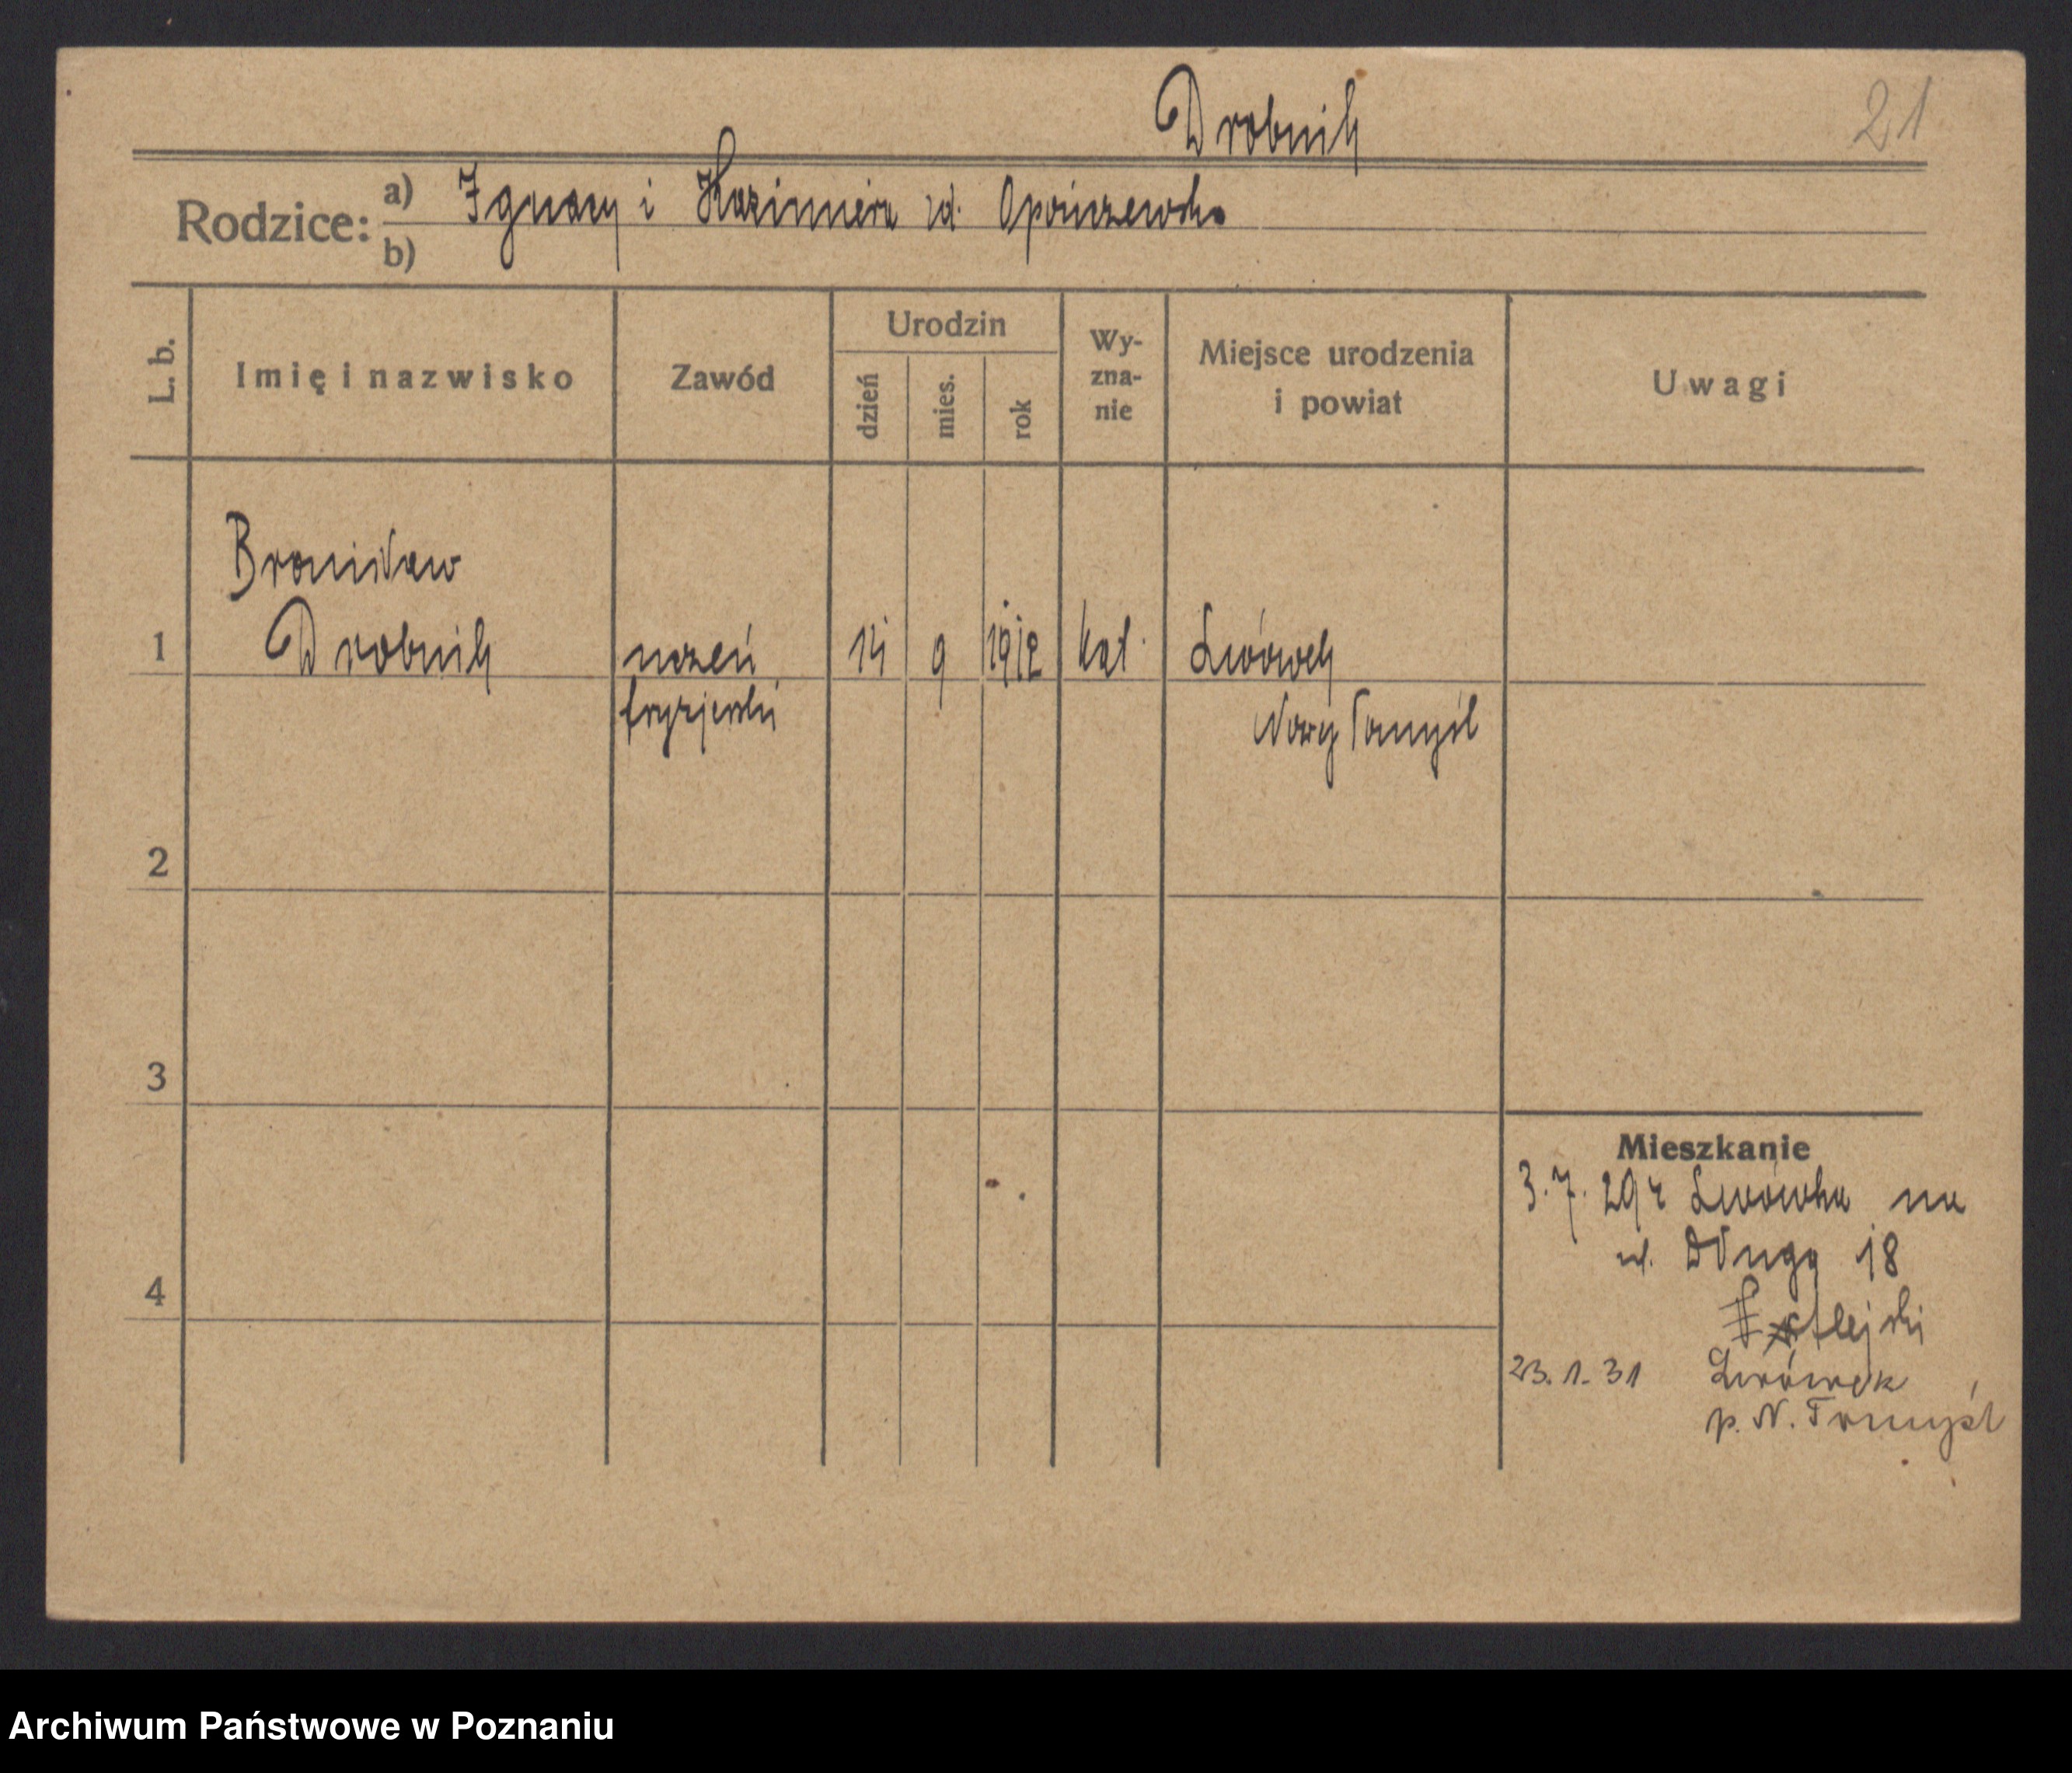 Drobnik
21
Rodzice: a) Ignacy i Kazimiera zd. Opończewska
b)
L. b.
Imię i nazwisko
Zawód
Urodzin
dzień
mies.
rok
Wy-
zna-
nie
Miejsce urodzenia
i powiat
Uwagi
Bronisław
1 Drobnik uczeń 14 9 1912 kat. Lwówek
fryzjerski Nowy Tomyśl
2
3
4
Mieszkanie
3.7.29 z Lwówka na
ul. Długa 18
23.1.31 Lwówek
p. N. Tomyśl
Archiwum Państwowe w Poznaniu